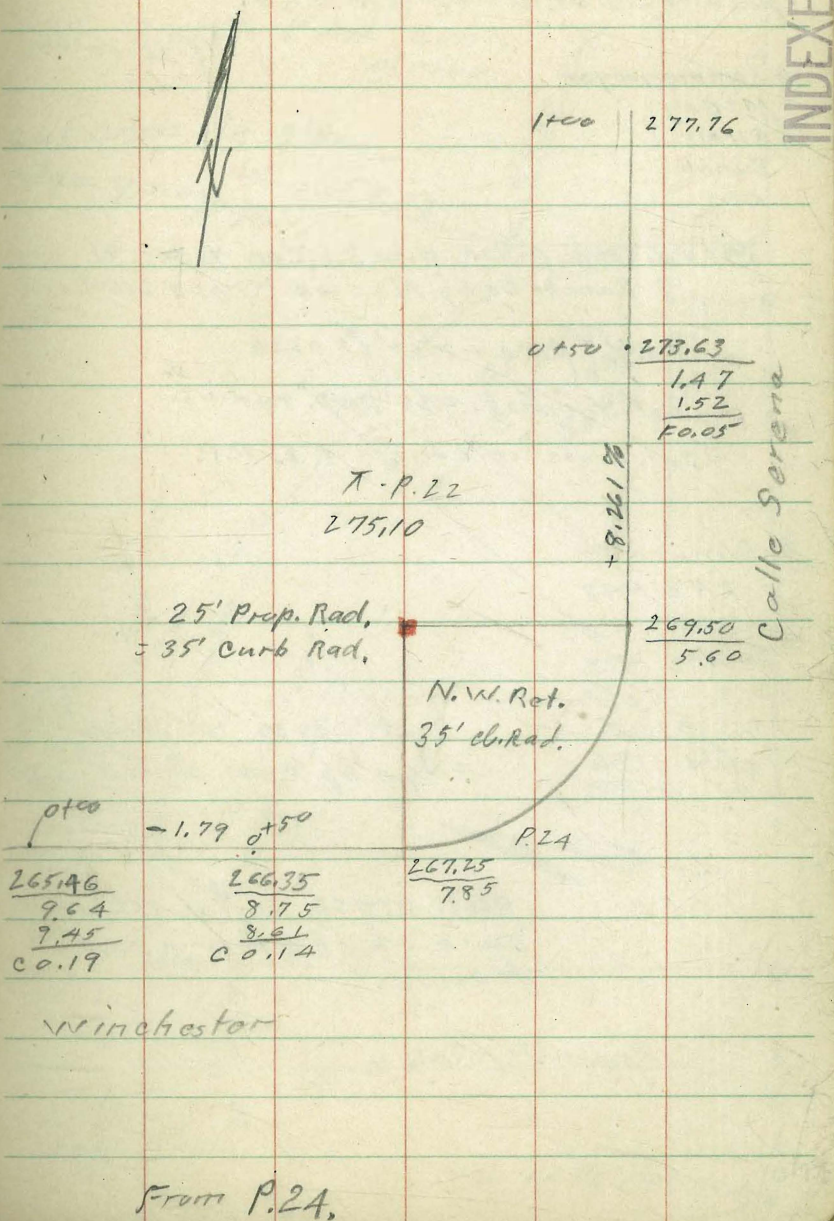 INDEXE
N
1+00 277.76
0+50 · 273.63
1.47
1.52
F0.05
Calle Serena
+8.261%
π - P.22
275.10
25' Prop. Rad.
= 35' Curb Rad.
269.50
5.60
N.W. Ret.
35' cb. Rad.
0+00
-1.79 0+50
P.24
265.46
9.64
9.45
C 0.19
266.35
8.75
8.61
C 0.14
267.25
7.85
Winchester
From P.24.